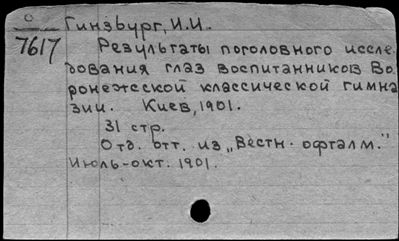 Гинзбург, И.И.
7617
Результаты поголовного иссле-
дования глаз воспитанников Во-
ронежской классической гимна-
зии. Киев, 1901.
31 стр.
Отд. отт. из „Вестн. офталм."
Июль-окт. 1901.